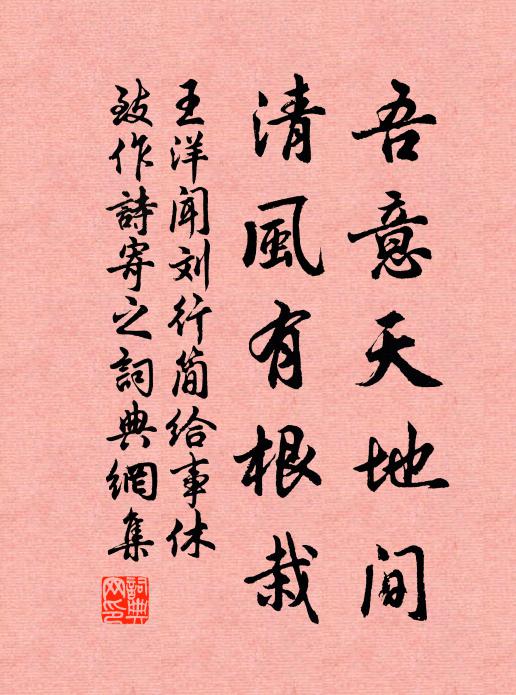 吾意天地间
清風有根栽
王洋闻刘行简给事休
致作詩寄之詞典網集
詞典网印